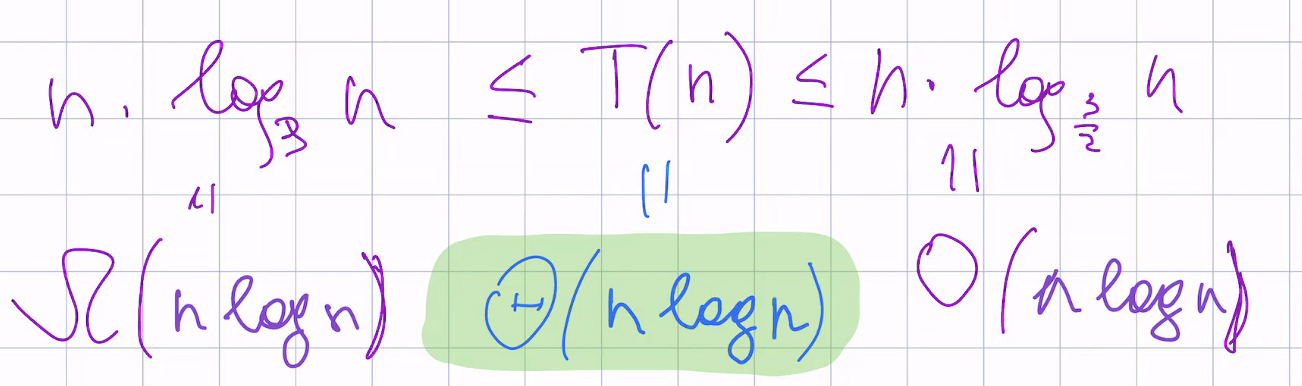 n · log₃ n ≤ T(n) ≤ n · log_{3/2} n
|| || ||
Ω(n log n) Θ(n log n) O(n log n)